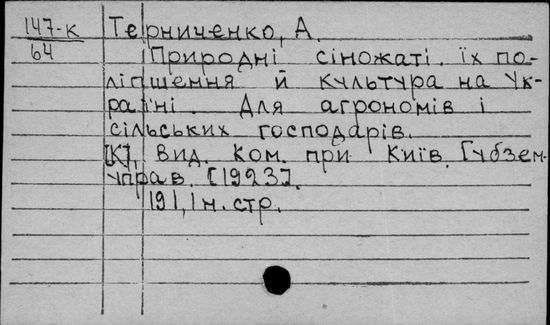 147-к
64
Терниченко, А.
Природні сіножаті. їх по-
ліпшення й культура на Ук-
раїні. Для агрономів і
сільських господарів.
[К]. Вид. Ком. при Київ. Губзем-
управ. [1923].
191, 1 н. стр.